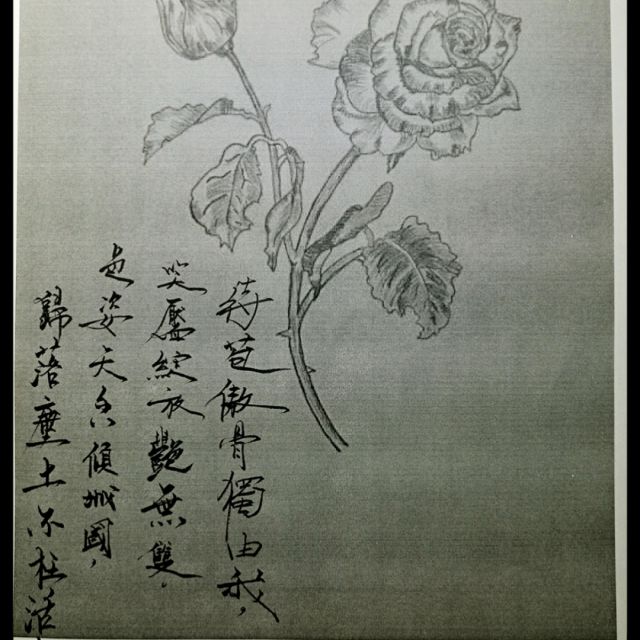 待苞傲骨獨由我，
笑靨綻放艷無雙，
色姿天香傾城國，
歸落塵土不枉活